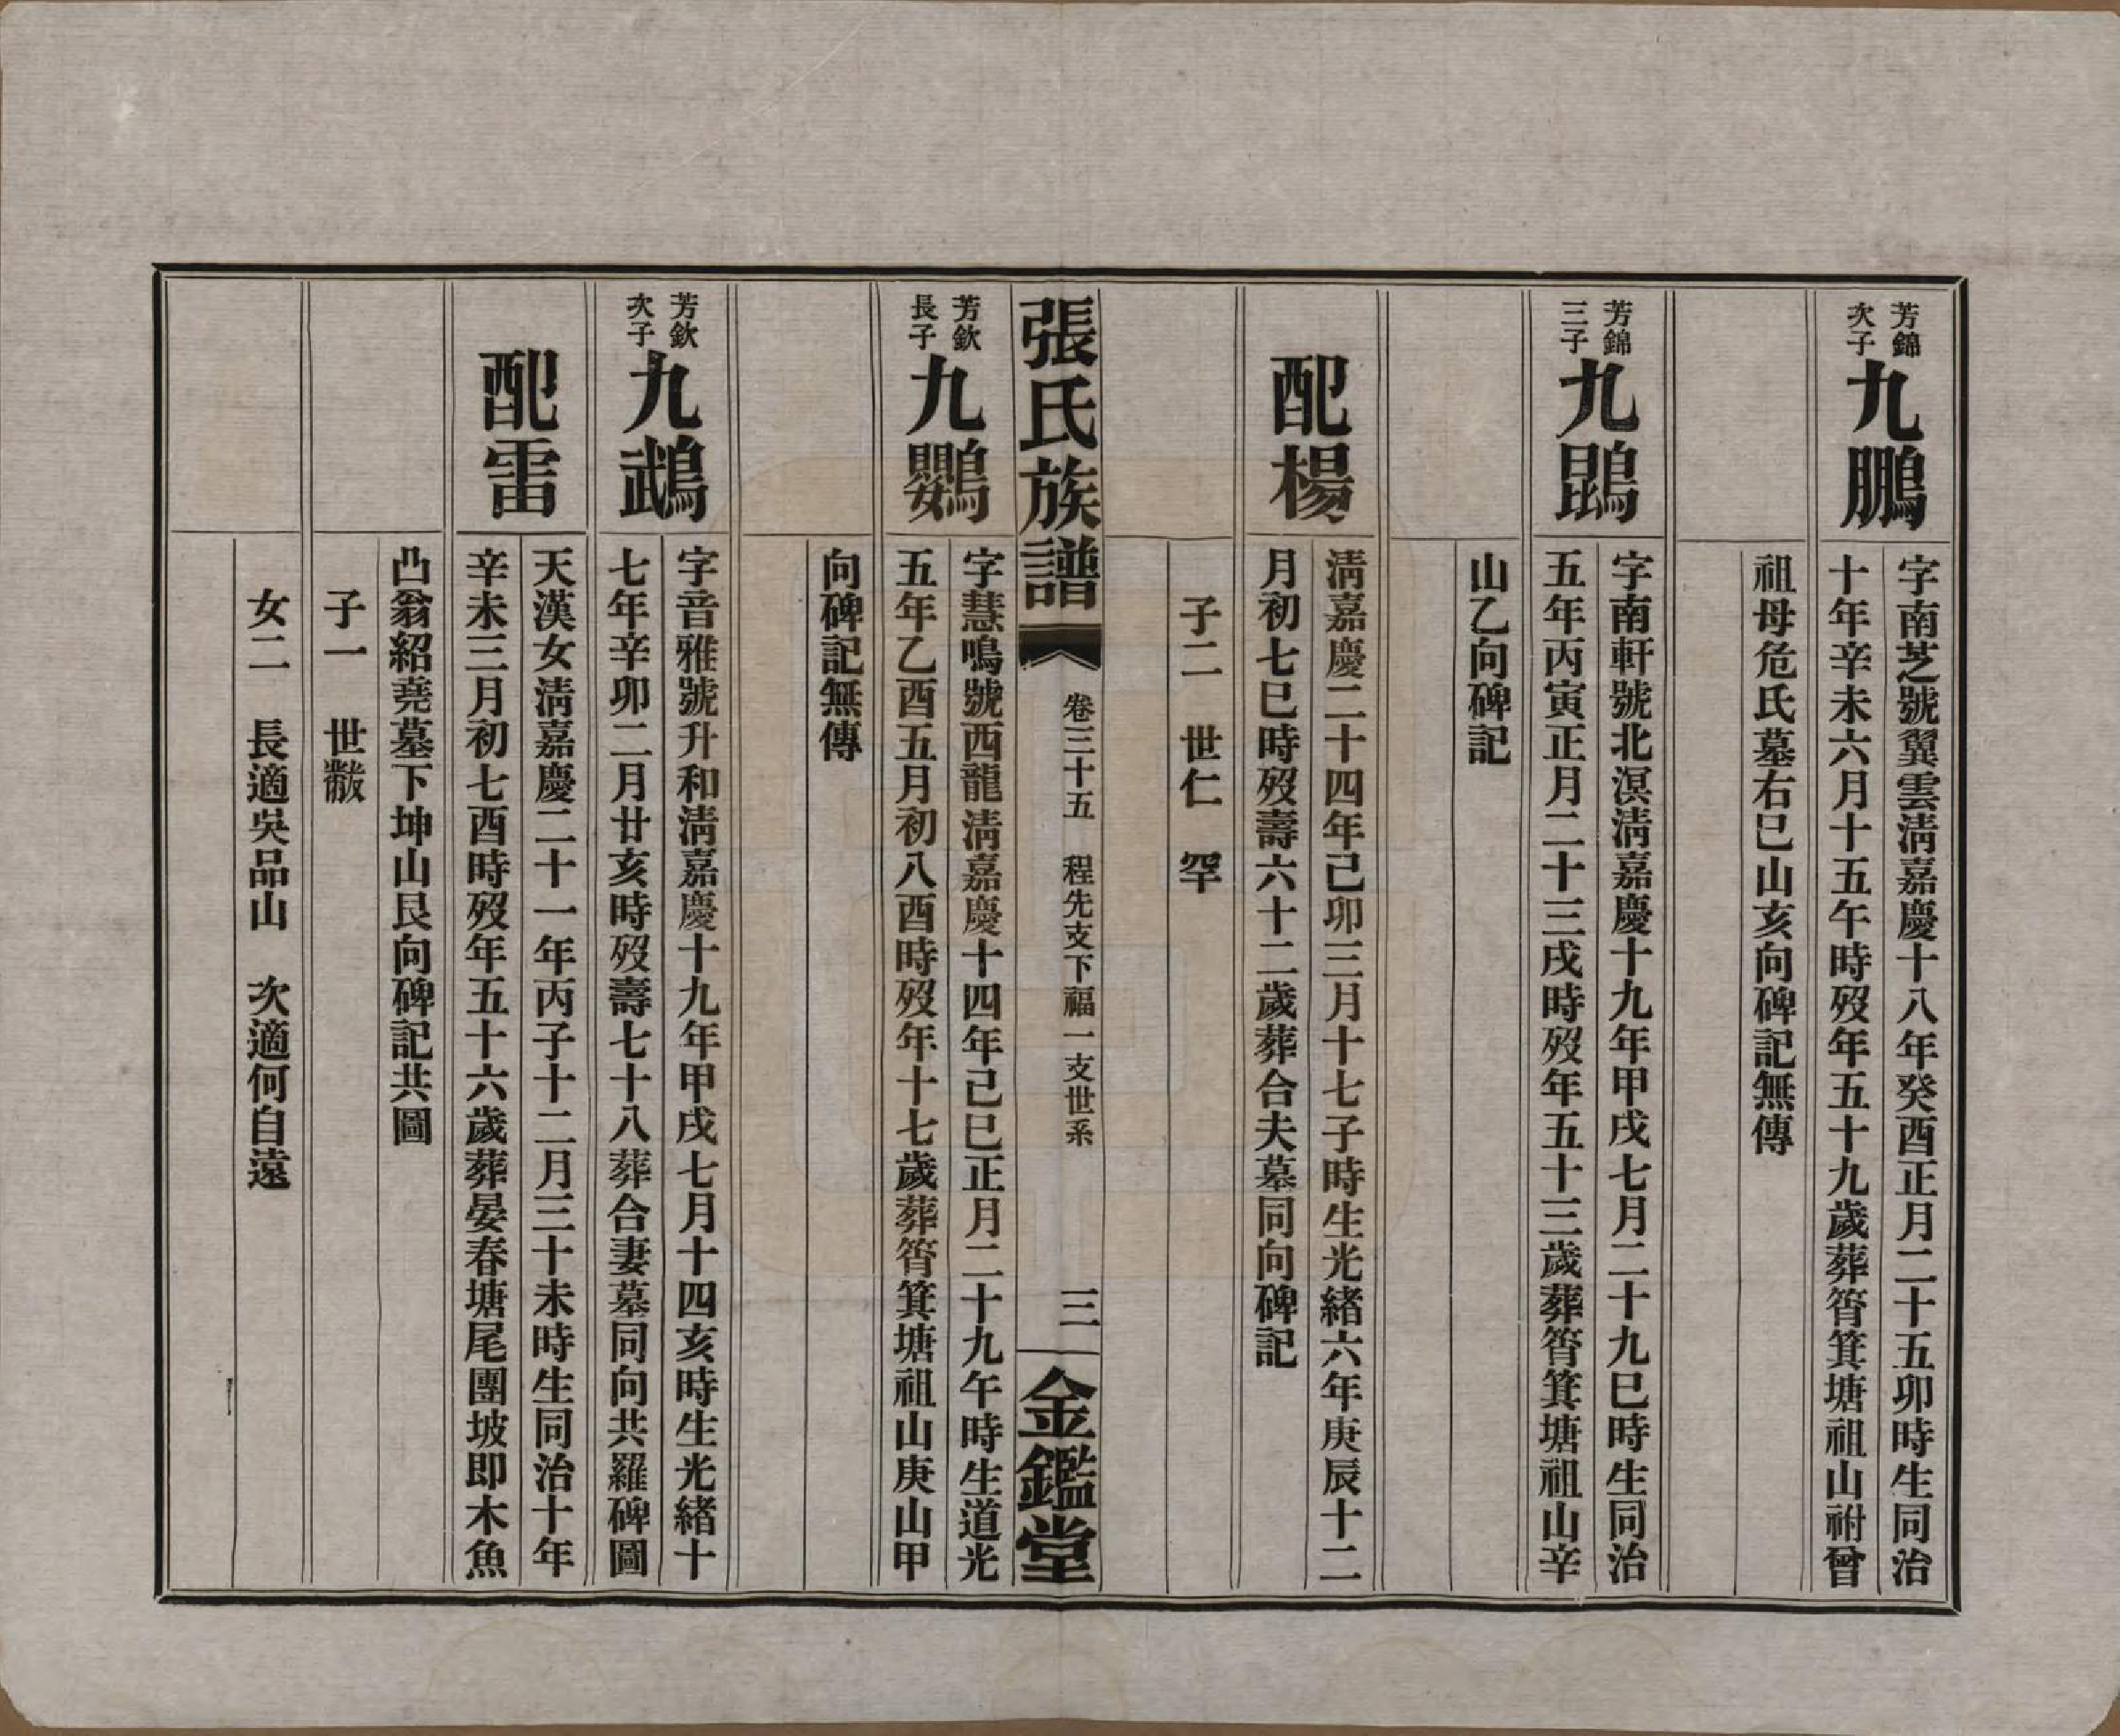 芳錦
次子
九鵬
字南芝號翼雲淸嘉慶十八年癸酉正月二十五卯時生同治
十年辛未六月十五午時歿年五十九歲葬筲箕塘祖山祔曾
祖母危氏墓右巳山亥向碑記無傳
芳錦
三子
九鵾
字南軒號北溟淸嘉慶十九年甲戌七月二十九巳時生同治
五年丙寅正月二十三戌時歿年五十三歲葬筲箕塘祖山辛
山乙向碑記
配楊
淸嘉慶二十四年己卯三月十七子時生光緖六年庚辰十二
月初七巳時歿壽六十二歲葬合夫墓同向碑記
子二 世仁 罕
張氏族譜
卷三十五 程先支下福一支世系
三
金鑑堂
芳欽
長子
九鸚
字慧鳴號西龍淸嘉慶十四年己巳正月二十九午時生道光
五年乙酉五月初八酉時歿年十七歲葬筲箕塘祖山庚山甲
向碑記無傳
芳欽
次子
九鵡
字音雅號升和淸嘉慶十九年甲戌七月十四亥時生光緖十
七年辛卯二月廿亥時歿壽七十八葬合妻墓同向共羅碑圖
配雷
天漢女淸嘉慶二十一年丙子十二月三十未時生同治十年
辛未三月初七酉時歿年五十六歲葬晏春塘尾團坡即木魚
凸翁紹堯墓下坤山艮向碑記共圖
子一 世黻
女二 長適吳品山 次適何自遠